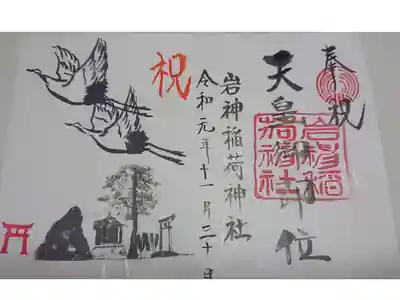 奉祝
天皇御即位
岩神稲
荷神社
岩神稲荷神社
令和元年十一月三十日
祝